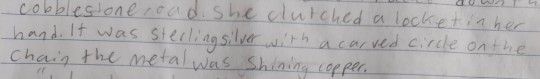 cobblestone road. She clutched a locket in her
hand. It was sterling silver with a carved circle on the
chain the metal was shining copper.